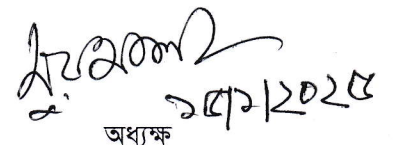 ১৫/১/২০২৫
অধ্যক্ষ